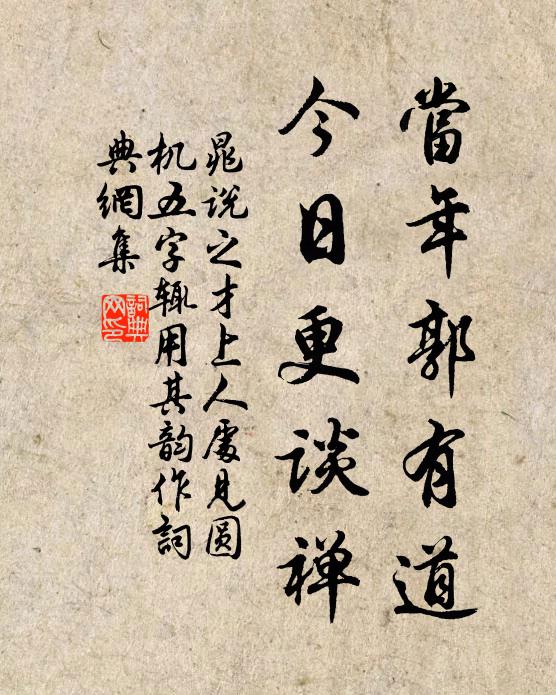 當年郭有道
今日更谈禅
晁说之才上人處见圆
机五字辄用其韵作詞
典網集
詞典網印